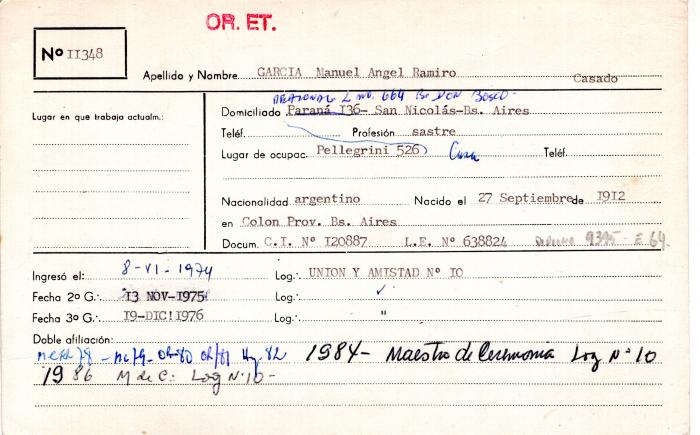 OR. ET.
Nº II348
Apellido y Nombre GARCIA Manuel Angel Ramiro Casado
664 Bº DON BOSCO-
Lugar en que trabaja actualm.:
Domiciliado Paraná I36- San Nicolás-Bs. Aires
Teléf. Profesión sastre
Lugar de ocupac. Pellegrini 526 Casa Teléf.
Nacionalidad argentino Nacido el 27 Septiembre de I9I2
en Colon Prov. Bs. Aires
Docum. C.I. Nº I20887 L.E. Nº 638824 9395 - E 64.
Ingresó el: 8-VI-1974 Log∴ UNION Y AMISTAD Nº IO
Fecha 2º G∴ I3 NOV-I975 Log∴ ✓
Fecha 3º G∴ I9-DIC!I976 Log∴ "
Doble afiliación:
OR-80 OR/81 82 1984- Maestro de Ceremonia Log Nº 10
1986 M de C: Log Nº 10-